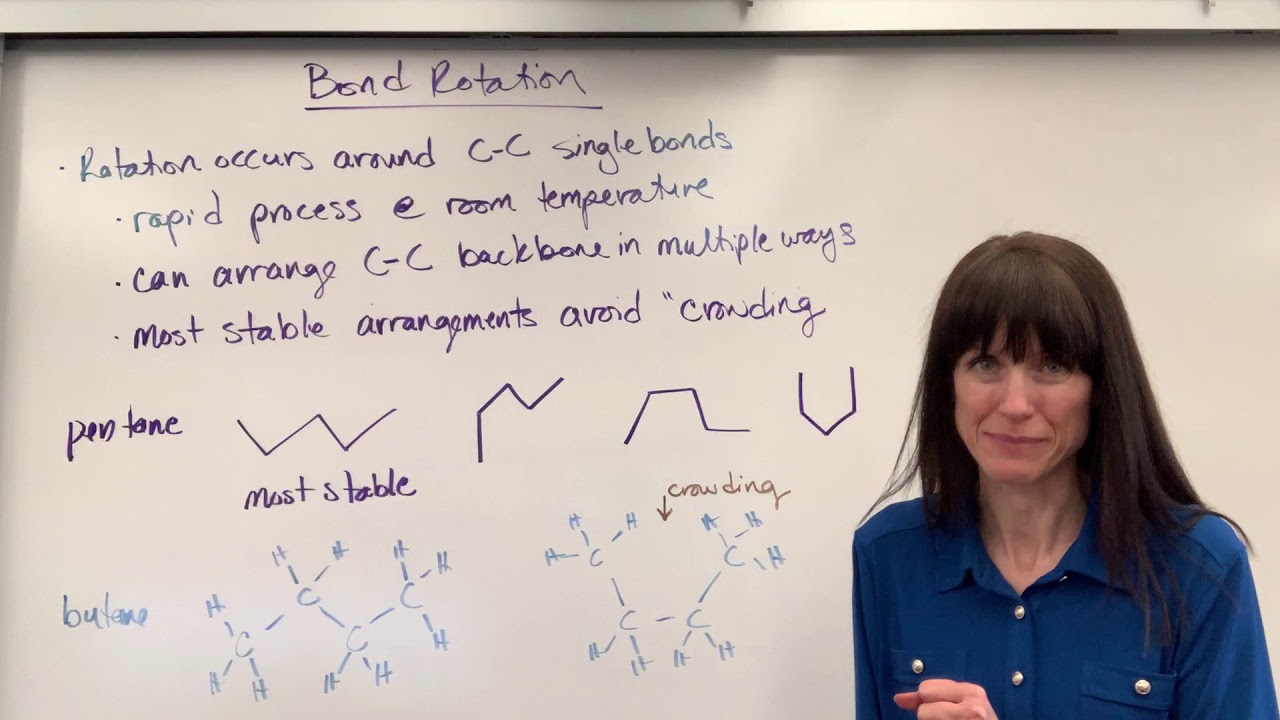 Bond Rotation
· Rotation occurs around C-C single bonds
· rapid process @ room temperature
· can arrange C-C backbone in multiple ways
· most stable arrangements avoid "crowding
pentane
most stable
crowding
butane
H H H H
H H H H
H C C H
H C C H
H H H H
C C
H H H H